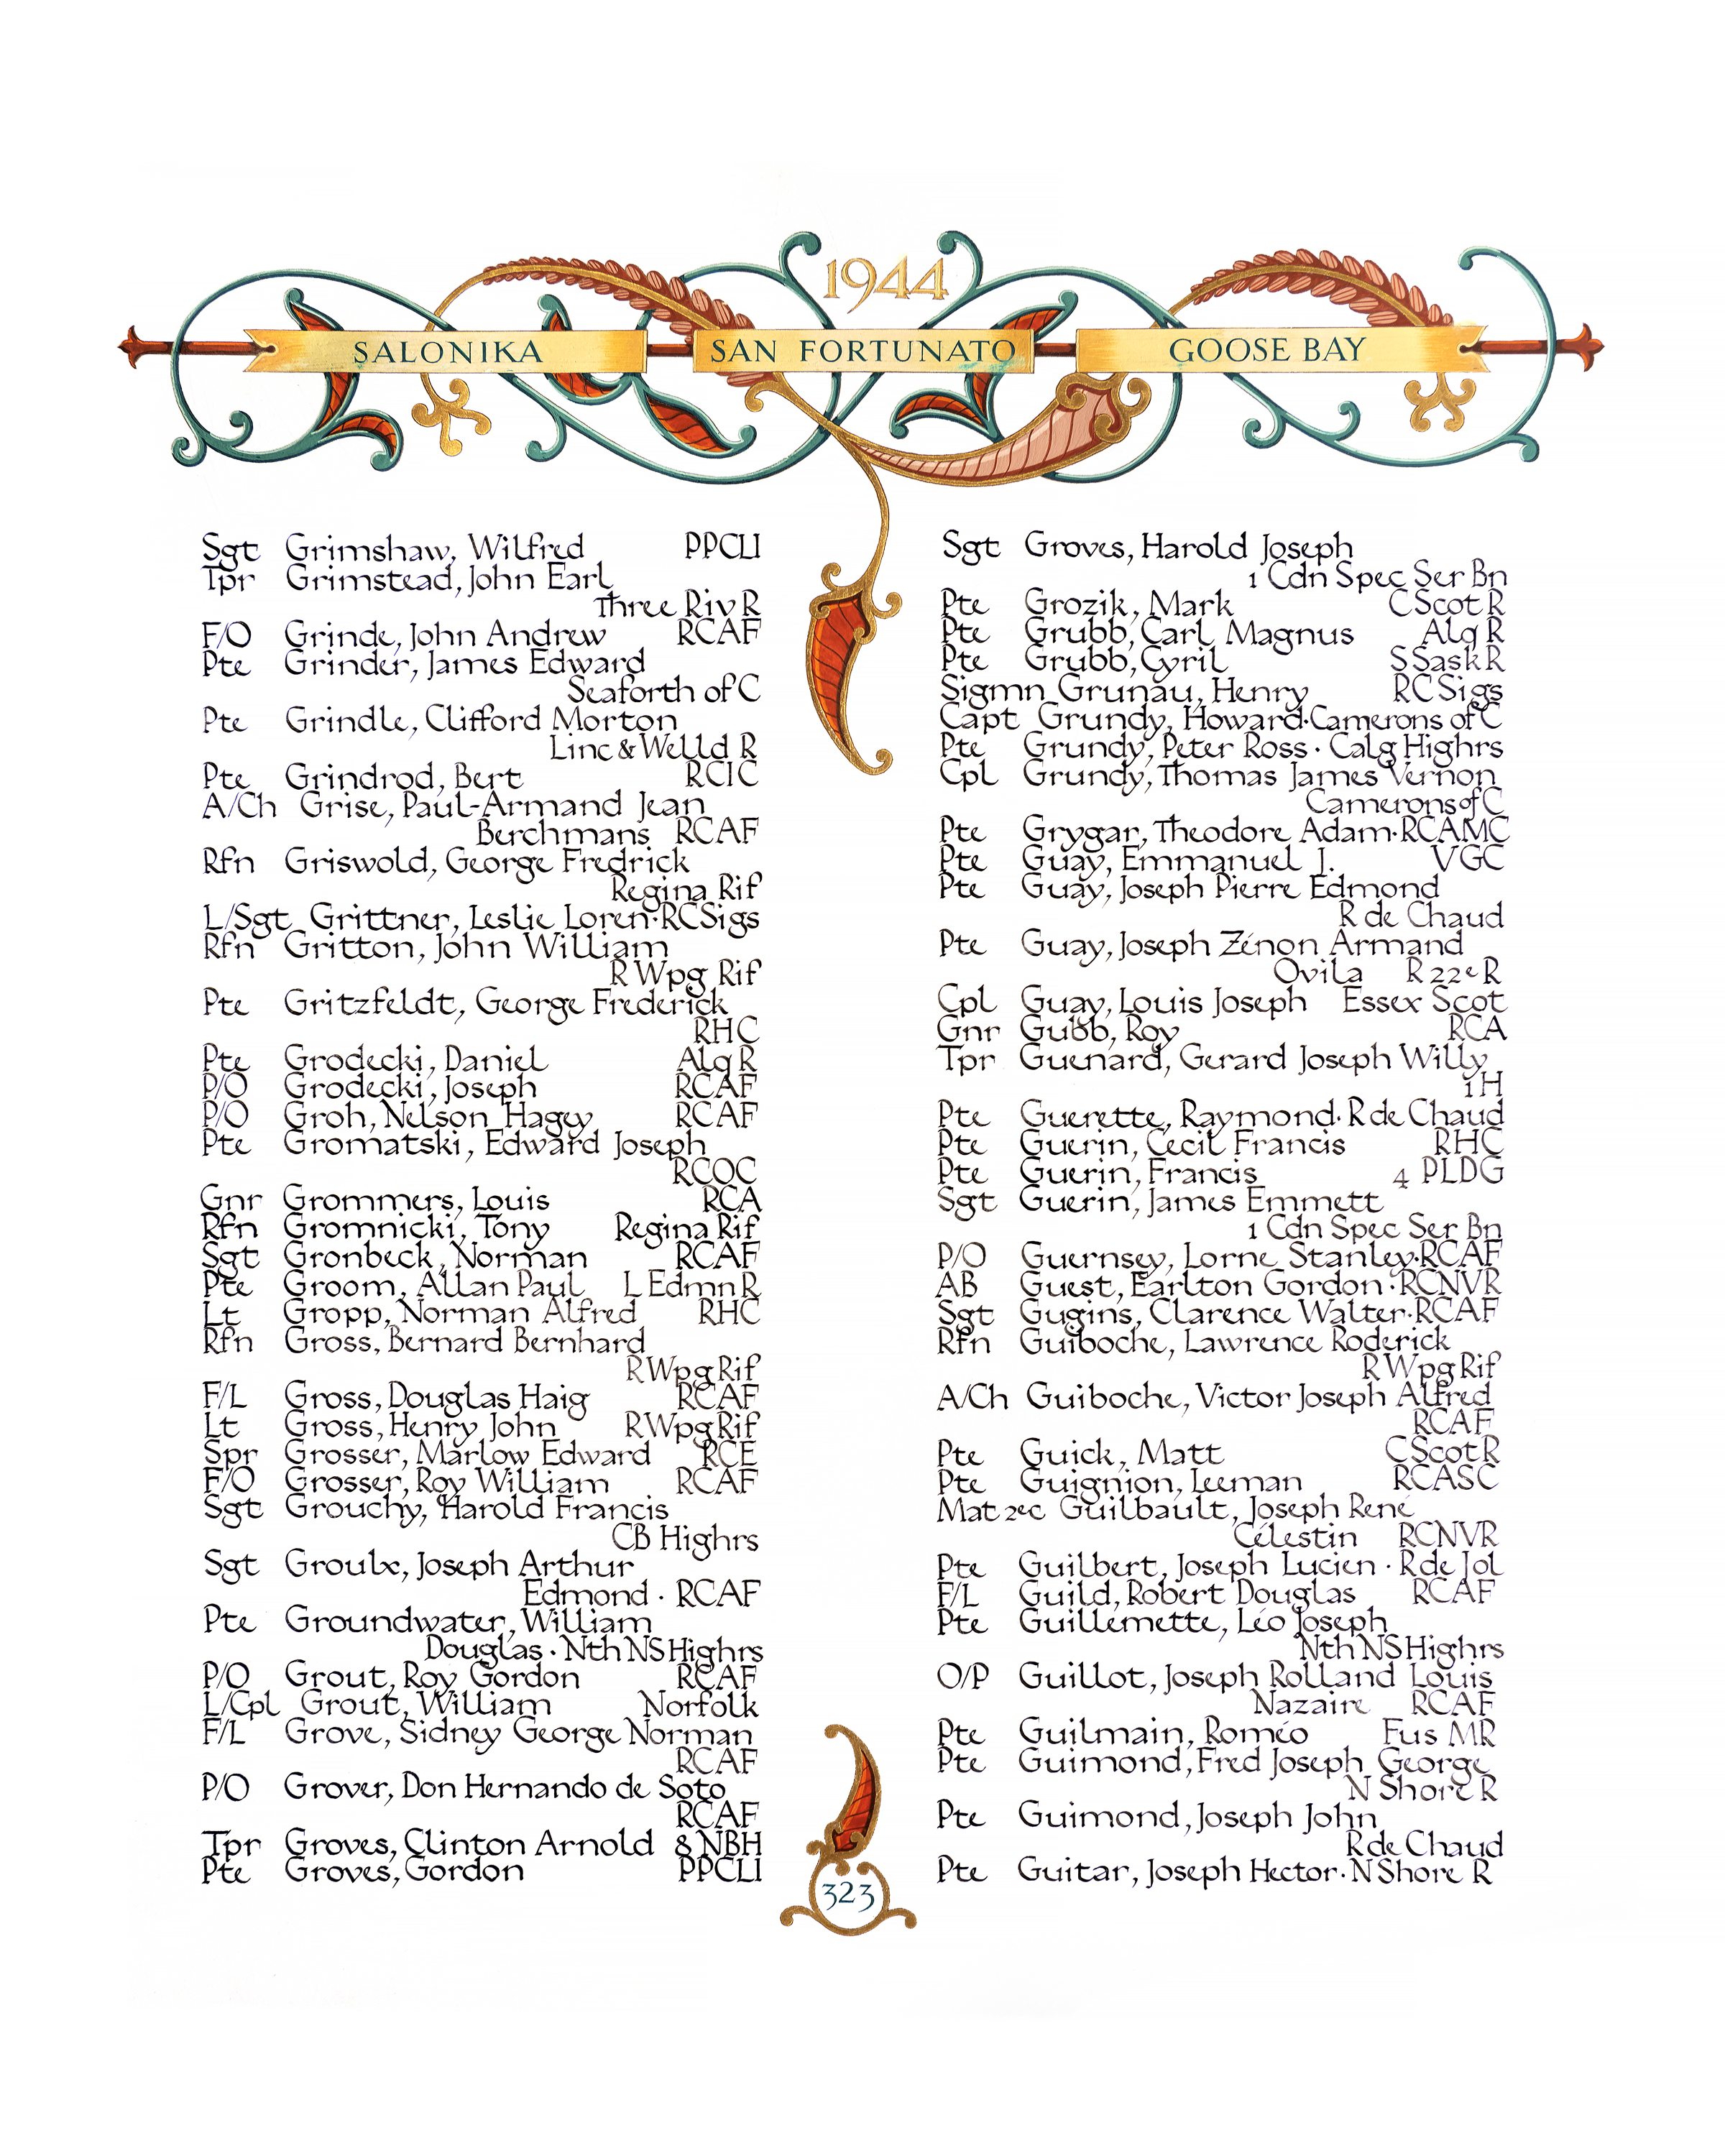 1944
SALONIKA SAN FORTUNATO GOOSE BAY
Sgt Grimshaw, Wilfred PPCLI
Tpr Grimstead, John Earl
Three Riv R
F/O Grinde, John Andrew RCAF
Pte Grinder, James Edward
Seaforth of C
Pte Grindle, Clifford Morton
Linc & Welld R
Pte Grindrod, Bert RCIC
A/Ch Grise, Paul-Armand Jean
Berchmans RCAF
Rfn Griswold, George Fredrick
Regina Rif
L/Sgt Grittner, Leslie Loren·RCSigs
Rfn Gritton, John William
R Wpg Rif
Pte Gritzfeldt, George Frederick
RHC
Pte Grodecki, Daniel Alq R
P/O Grodecki, Joseph RCAF
P/O Groh, Nelson Hagey RCAF
Pte Gromatski, Edward Joseph
RCOC
Gnr Grommers, Louis RCA
Rfn Gromnicki, Tony Regina Rif
Sgt Gronbeck, Norman RCAF
Pte Groom, Allan Paul L Edmn R
Lt Gropp, Norman Alfred RHC
Rfn Gross, Bernard Bernhard
R Wpg Rif
F/L Gross, Douglas Haig RCAF
Lt Gross, Henry John R Wpg Rif
Spr Grosser, Marlow Edward RCE
F/O Grosser, Roy William RCAF
Sgt Grouchy, Harold Francis
CB Highrs
Sgt Groulx, Joseph Arthur
Edmond · RCAF
Pte Groundwater, William
Douglas · Nth NS Highrs
P/O Grout, Roy Gordon RCAF
L/Cpl Grout, William Norfolk
F/L Grove, Sidney George Norman
RCAF
P/O Grover, Don Hernando de Soto
RCAF
Tpr Groves, Clinton Arnold 8 NBH
Pte Groves, Gordon PPCLI
Sgt Groves, Harold Joseph
1 Cdn Spec Ser Bn
Pte Grozik, Mark C Scot R
Pte Grubb, Carl Magnus Alq R
Pte Grubb, Cyril S Sask R
Sigmn Grunau, Henry RC Sigs
Capt Grundy, Howard·Camerons of C
Pte Grundy, Peter Ross · Calg Highrs
Cpl Grundy, Thomas James Vernon
Camerons of C
Pte Grygar, Theodore Adam·RCAMC
Pte Guay, Emmanuel J. VGC
Pte Guay, Joseph Pierre Edmond
R de Chaud
Pte Guay, Joseph Zénon Armand
Ovila R 22e R
Cpl Guay, Louis Joseph Essex Scot
Gnr Gubb, Roy RCA
Tpr Guenard, Gerard Joseph Willy
1 H
Pte Guerette, Raymond·R de Chaud
Pte Guerin, Cecil Francis RHC
Pte Guerin, Francis 4 PLDG
Sgt Guerin, James Emmett
1 Cdn Spec Ser Bn
P/O Guernsey, Lorne Stanley·RCAF
AB Guest, Earlton Gordon·RCNVR
Sgt Gugins, Clarence Walter·RCAF
Rfn Guiboche, Lawrence Roderick
R Wpg Rif
A/Ch Guiboche, Victor Joseph Alfred
RCAF
Pte Guick, Matt C Scot R
Pte Guignion, Leeman RCASC
Mat 2ec Guilbault, Joseph René
Célestin RCNVR
Pte Guilbert, Joseph Lucien · R de Jol
F/L Guild, Robert Douglas RCAF
Pte Guillemette, Léo Joseph
Nth NS Highrs
O/P Guillot, Joseph Rolland Louis
Nazaire RCAF
Pte Guilmain, Roméo Fus MR
Pte Guimond, Fred Joseph George
N Shore R
Pte Guimond, Joseph John
R de Chaud
Pte Guitar, Joseph Hector·N Shore R
323